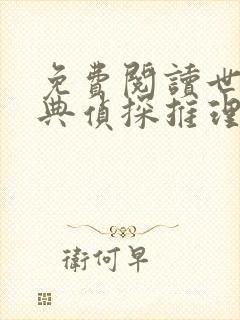 免費閱讀世
典偵探推理
衛何早